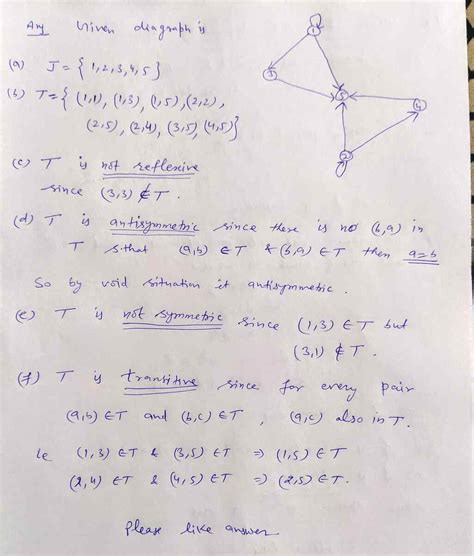 Ans Given diagraph is
1
3
5
4
2
(a) J = { 1,2,3,4,5 }
(b) T = { (1,1), (1,3), (1,5), (2,2),
(2,5), (2,4), (3,5), (4,5)}
(c) T is not reflexive
since (3,3) ∉ T.
(d) T is antisymmetric since there is no (b,a) in
T s.that (a,b) ∈T & (b,a) ∈ T then a=b
So by void situation it antisymmetric.
(e) T is not symmetric since (1,3) ∈ T but
(3,1) ∉ T.
(f) T is transitive since for every pair
(a,b)∈T and (b,c)∈T, (a,c) also in T.
ie (1,3) ∈T & (3,5) ∈T ⇒ (1,5) ∈T
(2,4) ∈T & (4,5) ∈T ⇒ (2,5) ∈T.
Please like answer